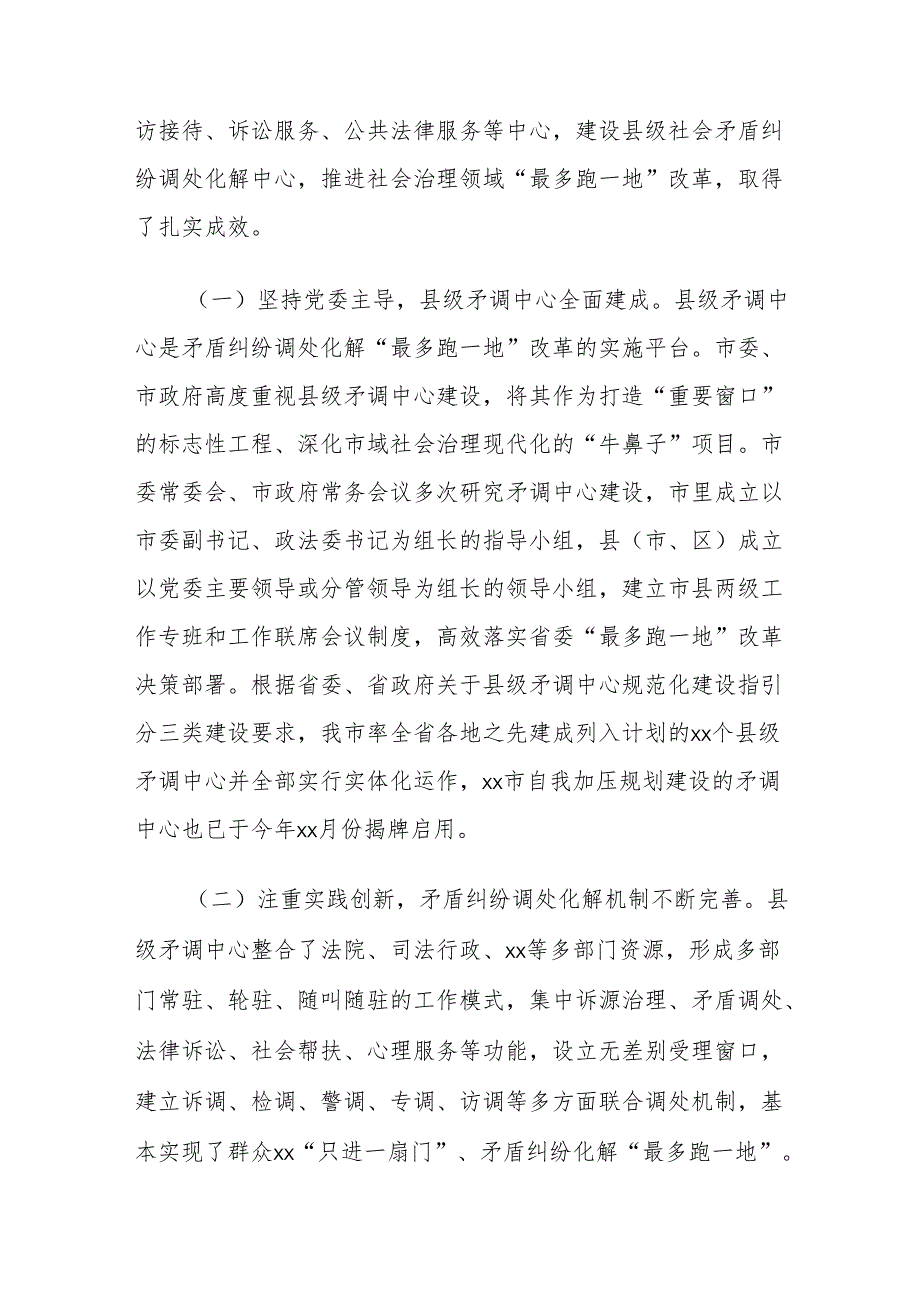 访接待、诉讼服务、公共法律服务等中心，建设县级社会矛盾纠
纷调处化解中心，推进社会治理领域“最多跑一地”改革，取得
了扎实成效。
（一）坚持党委主导，县级矛调中心全面建成。县级矛调中
心是矛盾纠纷调处化解“最多跑一地”改革的实施平台。市委、
市政府高度重视县级矛调中心建设，将其作为打造“重要窗口”
的标志性工程、深化市域社会治理现代化的“牛鼻子”项目。市
委常委会、市政府常务会议多次研究矛调中心建设，市里成立以
市委副书记、政法委书记为组长的指导小组，县（市、区）成立
以党委主要领导或分管领导为组长的领导小组，建立市县两级工
作专班和工作联席会议制度，高效落实省委“最多跑一地”改革
决策部署。根据省委、省政府关于县级矛调中心规范化建设指引
分三类建设要求，我市率全省各地之先建成列入计划的xx个县级
矛调中心并全部实行实体化运作，xx市自我加压规划建设的矛调
中心也已于今年xx月份揭牌启用。
（二）注重实践创新，矛盾纠纷调处化解机制不断完善。县
级矛调中心整合了法院、司法行政、xx等多部门资源，形成多部
门常驻、轮驻、随叫随驻的工作模式，集中诉源治理、矛盾调处、
法律诉讼、社会帮扶、心理服务等功能，设立无差别受理窗口，
建立诉调、检调、警调、专调、访调等多方面联合调处机制，基
本实现了群众xx“只进一扇门”、矛盾纠纷化解“最多跑一地”。